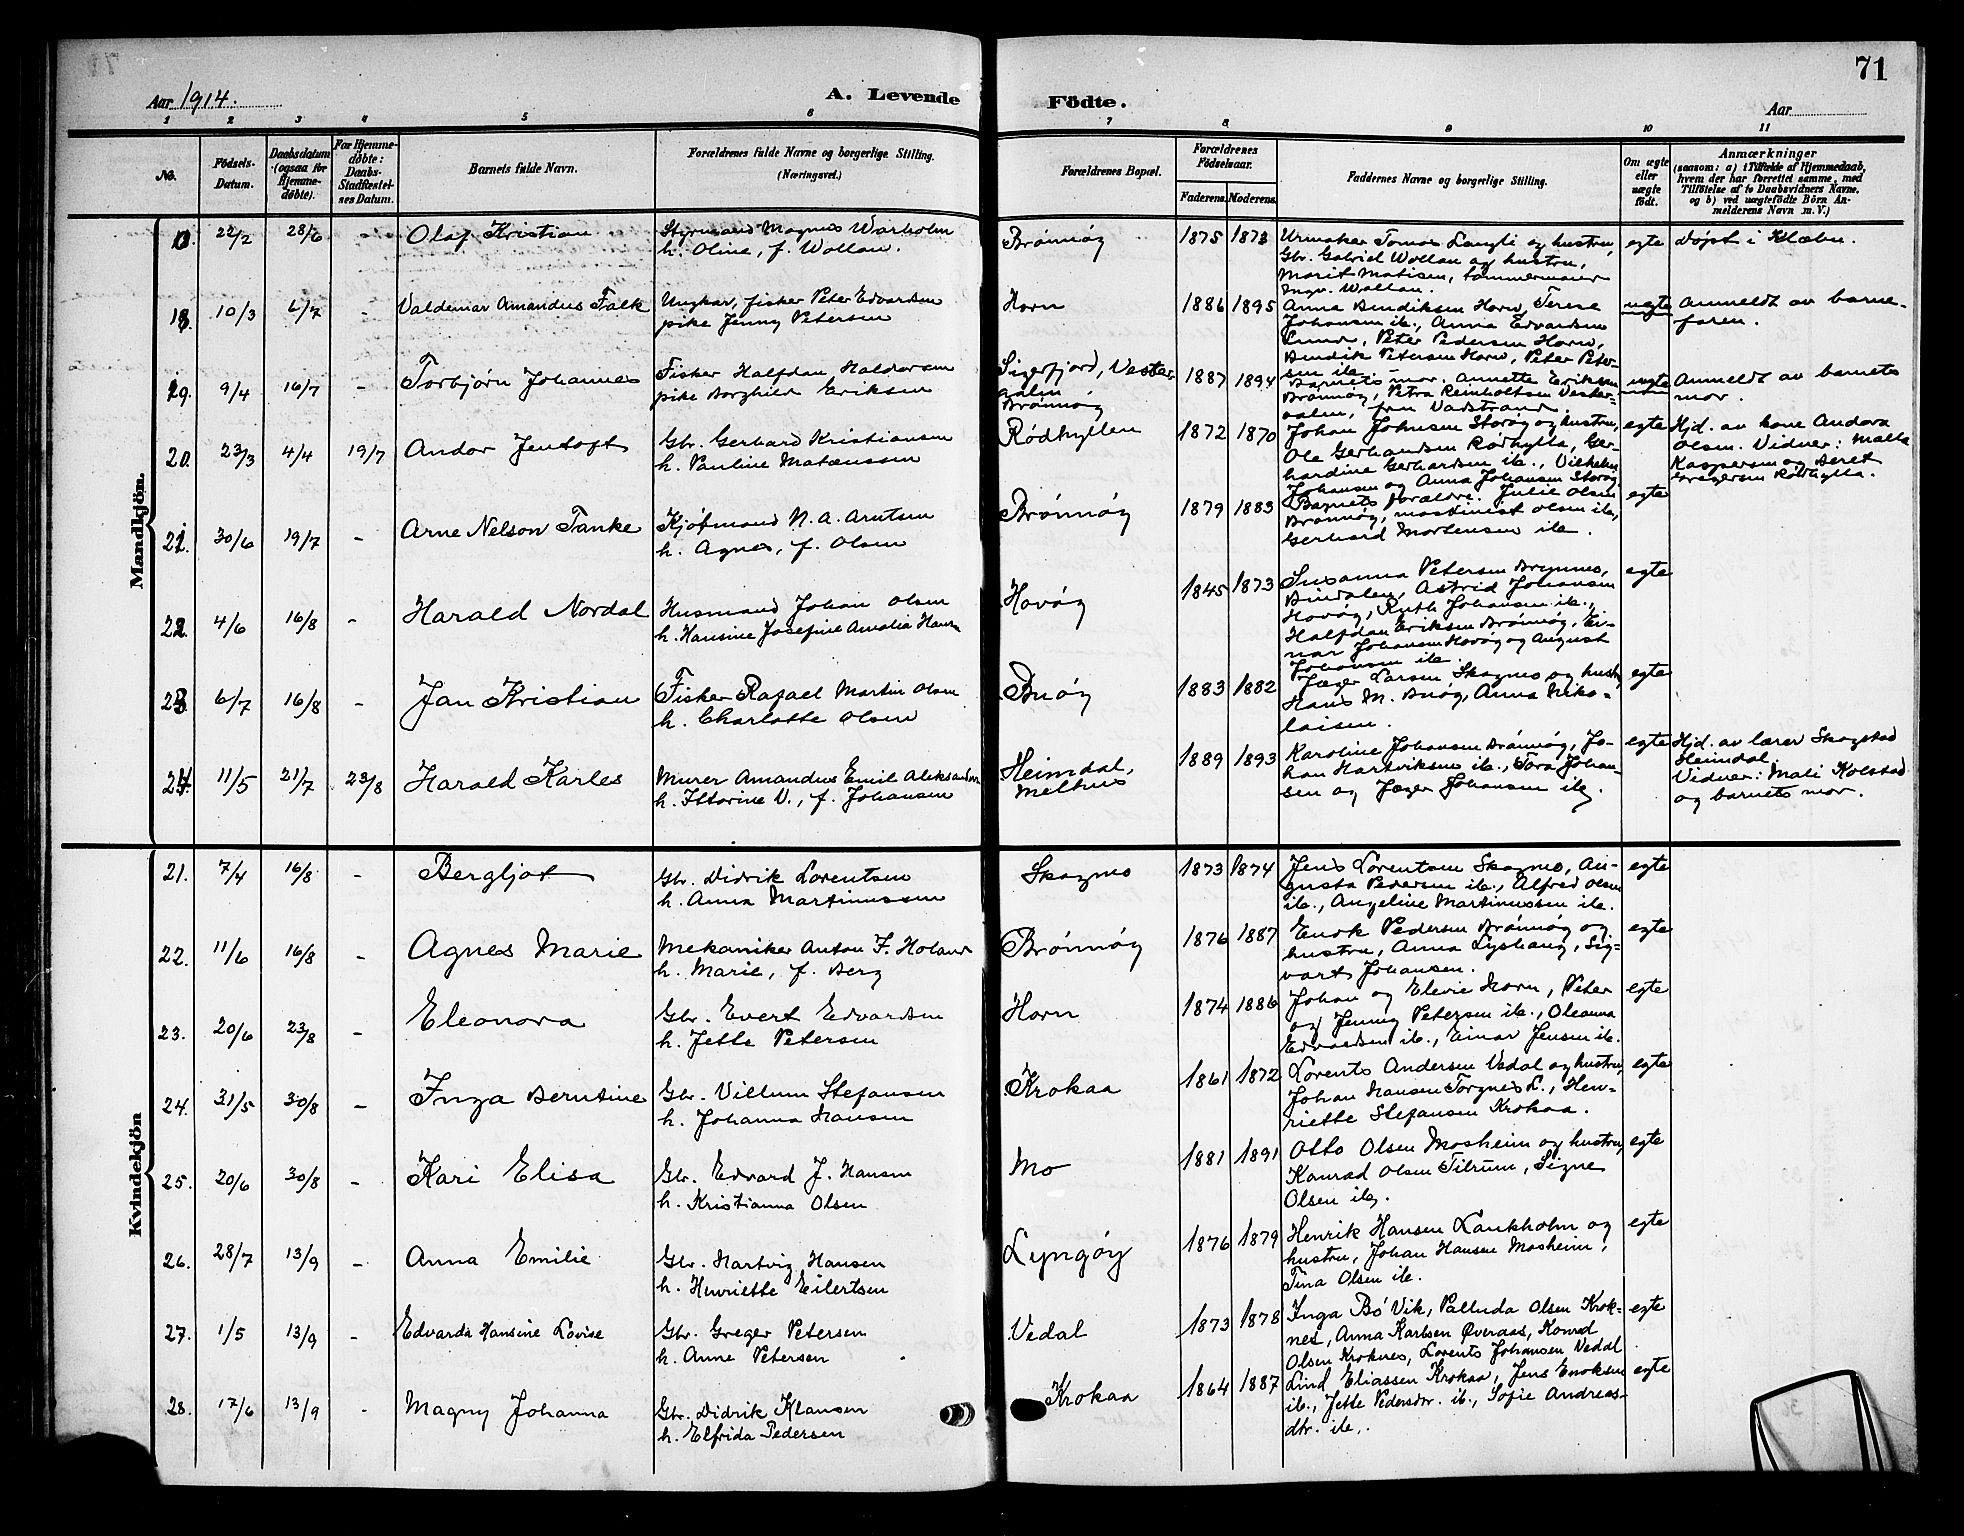 71
Aar 1914.
A. Levende
Födte.
Aar
1 2 3 4 5 6 7 8 9 10 11
No.
Födsels-Datum.
Daabsdatum (ogsaa for Hjemmedøbte).
For Hjemmedøbte: Daabs-Stadfæstelses Datum.
Barnets fulde Navn.
Forældrenes fulde Navne og borgerlige Stilling.
(Næringsvei.)
Forældrenes Bopæl.
Forældrenes Födselsaar.
Faderens. Moderens.
Faddernes Navne og borgerlige Stilling.
Om ægte eller uægte födt.
Anmærkninger
(saasom: a) i Tilfælde af Hjemmedaab,
hvem der har forrettet samme, med
Tilföielse af to Daabsvidners Navne,
og b) ved uægtefödte Börn Anmelderens Navn m. V.)
Mandkjön.
22/2 28/6 - Olaf Kristian Styrmand Magnus Warholm Brönnöy 1875 1873 Urmaker Tomas Langli og hustru, egte döpt i Klæbu.
h. Oline, f. Wollan. Gbr. Gabriel Wollan og hustru,
Marit Matisen, tömmermann
Ingv. Wollan.
18. 10/3 6/7 - Valdemar Amandus Falk Ungkar, fisker Peter Edvardsen Horn 1886 1895 Anna Bendiksen Horn, Terese uegte Anmeldt av barne-
pike Jenny Petersen Johansen ib., Anna Edvardsen faren.
Lund, Peter Pedersen Horn,
Bendik Petersen Horn, Peter Peter-
sen ib.
19. 9/4 16/7 - Torbjørn Johannes Fisker Halfdan Haldorsen Sigerfjord, Vester- 1887 1894 Barnets mor, Annette Eriksen uegte Anmeldt av barnets
pike Borghild Eriksen aalen Brönnöy, Petra Reinholtsen Vester- mor.
Brönnöy aalen, fru Vadstrand.
20. 23/3 4/4 19/7 Andor Jentoft Gbr. Gerhard Kristiansen Rödhyllen 1872 1870 Johan Johnsen Storöy og hustru, egte Hjd. av kone Andora
h. Pauline Matæussen Ole Gerhardsen Rödhylla, Ger- Olsen. Vidner: Malla
hardine Gerhardsen ib., Vilhelm Kaspersen og Beret
Johansen og Anna Johansen Storöy Gregersen Rödhylla.
21. 30/6 19/7 - Arne Nelson Tanke Kjötmand N. A. Arntsen Brönnöy 1879 1883 Barnets forældre. Julie Olsen egte
h. Agnes, f. Olsen Brönnöy, maskinist Olsen ib.,
Gerhard Mortensen ib.
22. 4/6 16/8 - Harald Nordal Husmand Johan Olsen Hovöy 1845 1873 Susanna Petersen Brynnes, egte
h. Hansine Josefine Amalia Hansen Bindalen, Astrid Johansen
Hovöy, Ruth Johansen ib.,
Halfdan Eriksen Brönnöy, Ei-
nar Johansen Hovöy og August
Johansen ib.
23. 6/7 16/8 - Jan Kristian Fisker Rafael Martin Olsen Buöy 1883 1882 Jæger Larsen Skagmo og hustru, egte
h. Charlotte Olsen Hans M. Buöy, Anna Niko-
laisen.
24. 11/5 21/7 23/8 Harald Karles Murer Amandus Emil Aleksandersen Heimdal, 1889 1893 Karoline Johansen Brönnöy, Jo- egte Hjd. av lærer Skogstad
h. Ittorine V., f. Johansen Melhus han Hartviksen ib., Tora Johan- Heimdal.
sen og Jæger Johansen ib. Vidner: Mali Kolstad
og barnets mor.
Kvindekjön
21. 7/4 16/8 - Bergljot Gbr. Didrik Lorentsen Skagmo 1873 1874 Jens Lorentsen Skagmo, Au- egte
h. Anna Martinussen gusta Pedersen ib., Alfred Olsen
ib., Angeline Martinussen ib.
22. 11/6 16/8 - Agnes Marie Mekaniker Anton F. Holand Brönnöy 1876 1887 Enok Pedersen Brönnöy og egte
h. Marie, f. Berg hustru, Anna Lyshaug, Sig-
vart Johansen.
23. 20/6 23/8 - Eleonora Gbr. Evert Edvardsen Horn 1874 1886 Johan og Elevie Horn, Peter egte
h. Jette Petersen og Jenny Petersen ib., Oleanna
Edvardsen ib., Einar Jensen ib.
24. 31/5 30/8 - Inga Berntine Gbr. Villum Stefansen Krokaa 1861 1872 Lorents Andersen Vedal og hustru, egte
h. Johanna Hansen Johan Hansen Torgnes L., Hen-
riette Stefansen Krokaa.
25. 20/6 30/8 - Kari Elisa Gbr. Edvard J. Hansen Mo 1881 1891 Otto Olsen Mosheim og hustru, egte
h. Kristianna Olsen Konrad Olsen Tilrum, Signe
Olsen ib.
26. 28/7 13/9 - Anna Emilie Gbr. Hartvig Hansen Lyngöy 1876 1879 Henrik Hansen Lankholm og egte
h. Henriette Eilertsen hustru, Johan Hansen Mosheim,
Tina Olsen ib.
27. 1/5 13/9 - Edvarda Hansine Lovise Gbr. Greger Petersen Vedal 1873 1878 Inga Bö Vik, Palluda Olsen Krok- egte
h. Anne Petersen nes, Anna Karlsen Øveraas, Konrad
Olsen Kroknes, Lorents Johansen Vedal
28. 17/6 13/9 - Magny Johanna Gbr. Didrik Klausen Krokaa 1864 1887 Lind Eliassen Krokaa, Jens Enoksen egte
h. Elfrida Pedersen ib., Jette Pedersdr. ib., Sofie Andreas-
dtr. ib.